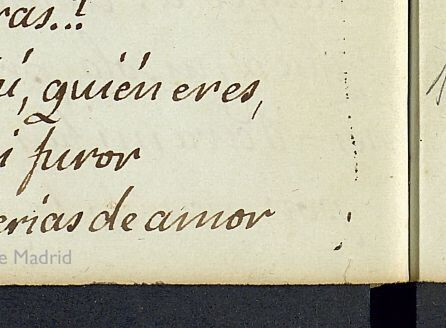 ras...!
ú, quién eres,
i furor
erías de amor
e Madrid